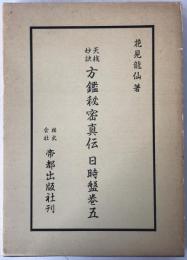 花見龍仙著
天機妙訣 方鑑秘密真伝 日時盤巻五
株式会社 帝都出版社刊